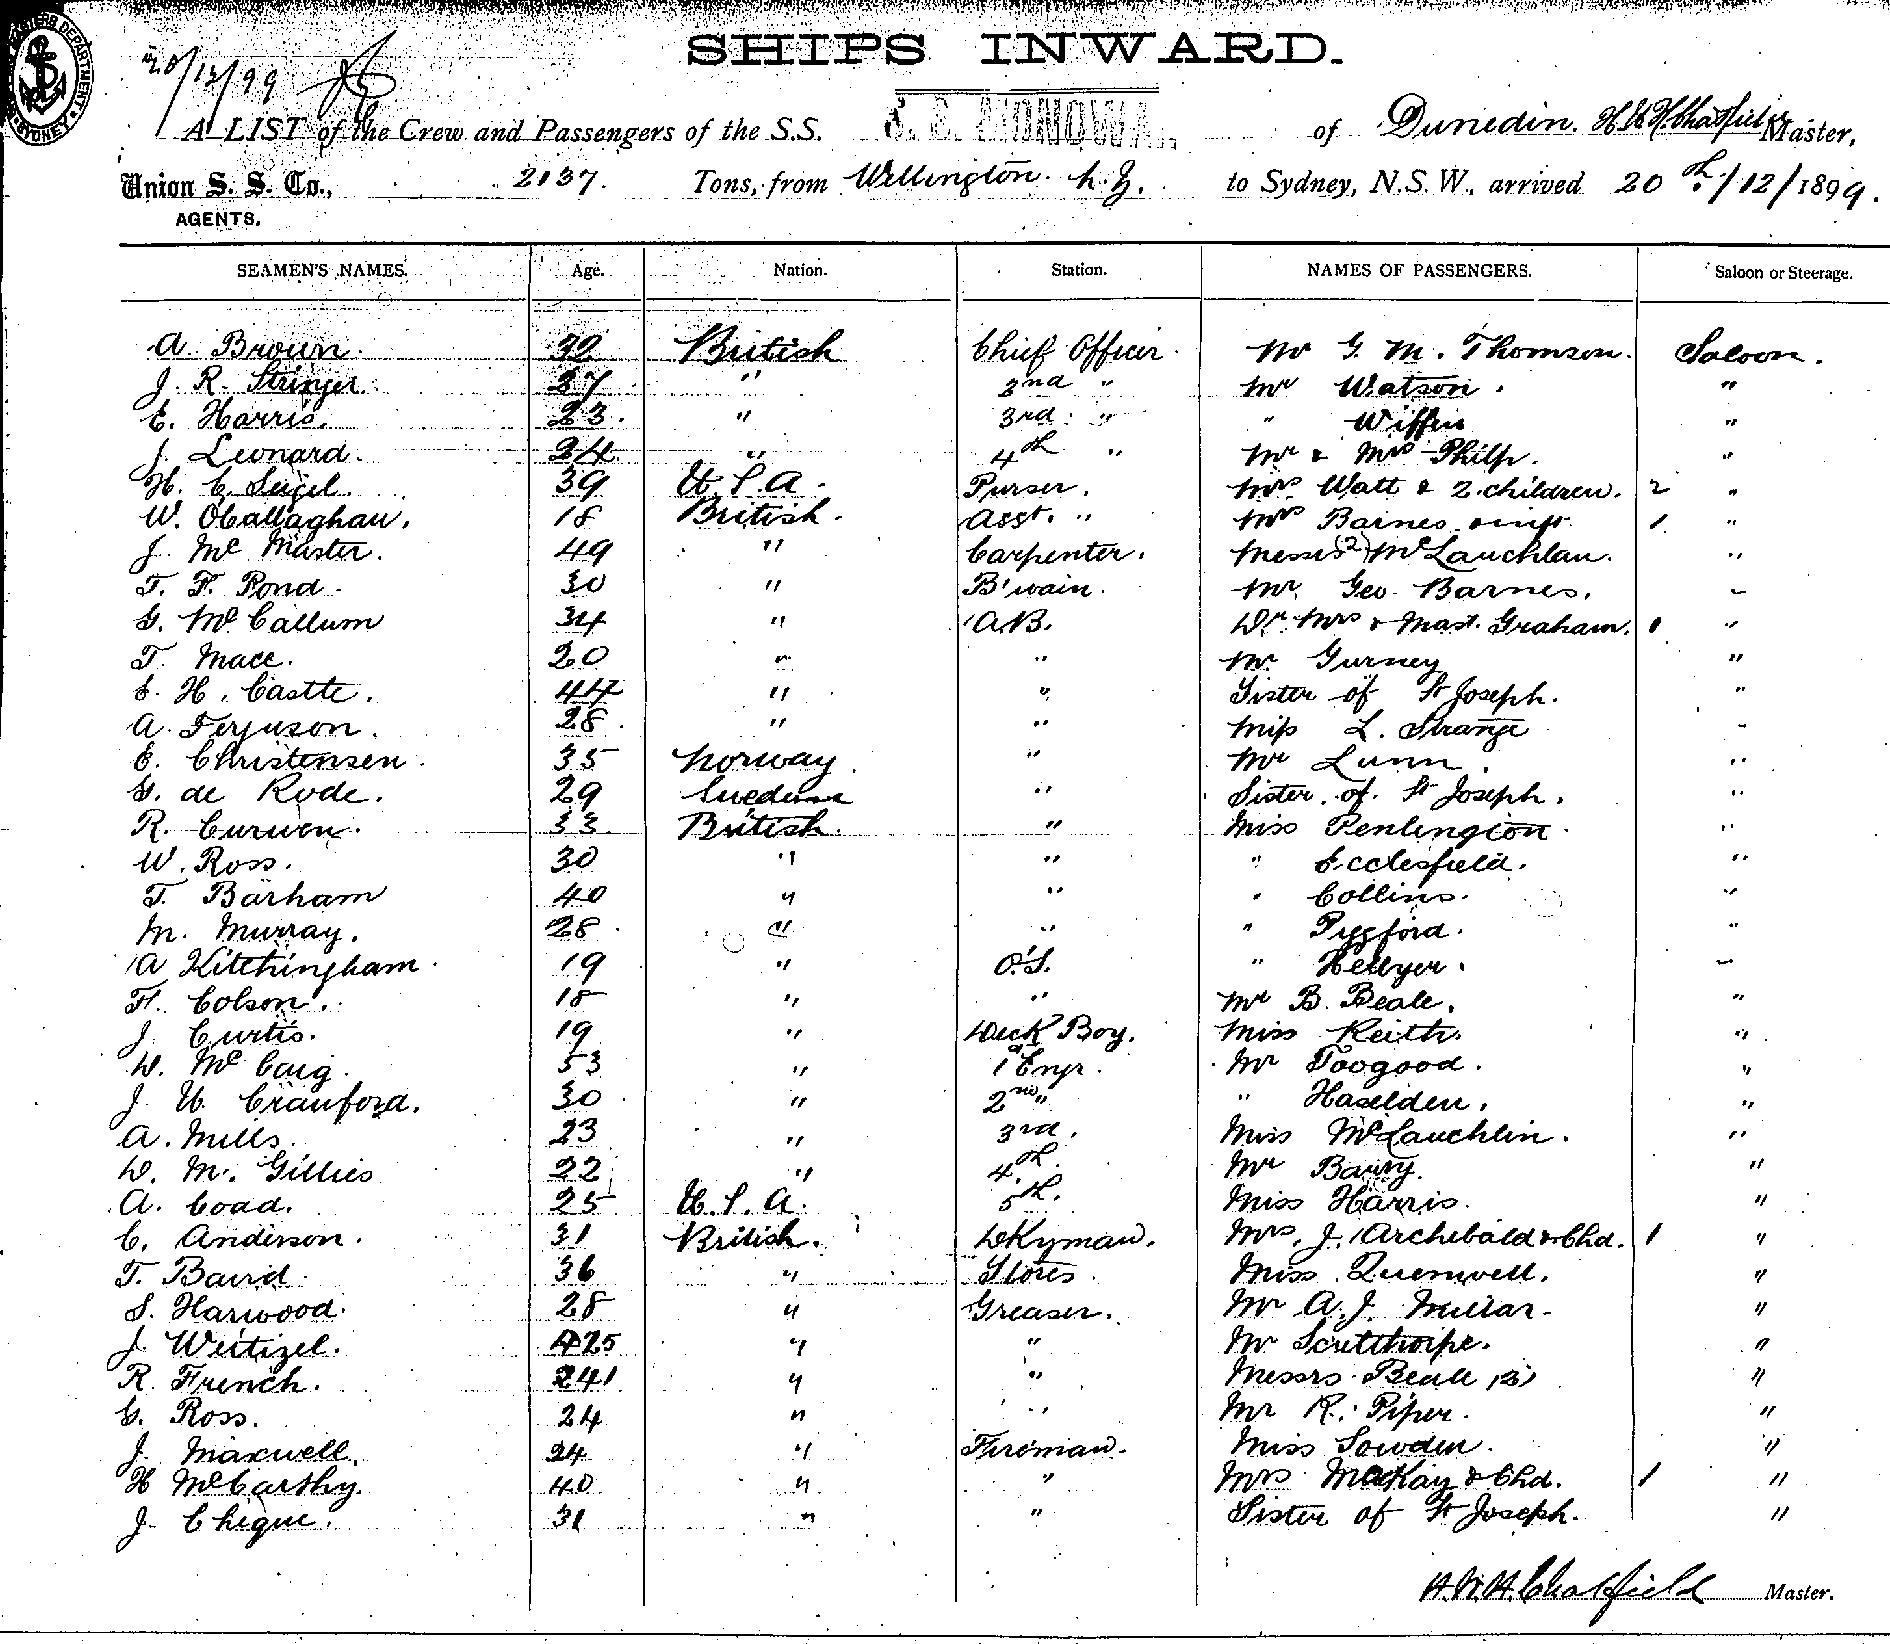 SHIPS INWARD.
20/12/99
A LIST of the Crew and Passengers of the S.S. S. S. MONOWAI. of Dunedin. H W H Chatfield Master,
Union S. S. Co., 2137. Tons, from Wellington. N. Z. to Sydney, N.S.W., arrived 20th/12/1899.
AGENTS.
SEAMEN'S NAMES. Age. Nation. Station. NAMES OF PASSENGERS. Saloon or Steerage.
A Brown. 32 British Chief Officer. Mr G. M. Thomson. Saloon.
J. R. Stringer 27 " 2nd " Mr Watson. "
E. Harris. 23. " 3rd " " Wiffin "
J. Leonard. 24. " 4th " Mr & Mrs Philp. "
H. C. Seigel. 39 U.S.A. Purser. Mrs Watt & 2 children. 2 "
W. OCallaghan. 18 British. Asst. " Mrs Barnes & inft 1 "
J. McMaster. 49 " Carpenter. Messrs (2) McLauchlan. "
T. F. Pond. 30 " B'swain. Mr. Geo. Barnes. "
G. McCallum 34 " A.B. Dr. Mrs & Mast. Graham. 1 "
T. Mace. 20 " " Mr Gurney "
E. H. Castle. 44 " " Sister of St Joseph. "
A. Ferguson. 28. " " Miss L. Strange "
E. Christensen. 35 Norway. " Mr Lunn. "
G. de Rode. 29 Sweden " Sister of St Joseph. "
R. Curwen. 33 British. " Miss Penlington. "
W. Ross. 30 " " " Ecclesfield. "
T. Barham 40 " " " Collins. "
M. Murray. 28. " " " Pygford. "
A Kitchingham. 19 " O.S. " Hellyer. "
H. Colson. 18 " " Mr B. Beale. "
J. Curtis. 19 " Deck Boy. Miss Keith. "
D. McCaig. 53 " 1st Engr. Mr Toogood. "
J. U. Cranford. 30 " 2nd " " Haselden. "
A. Mills. 23 " 3rd. Miss McLauchlin. "
D. M. Gillies 22 " 4th. Mr Barry. "
A. Coad. 25 U.S.A. 5th. Miss Harris. "
C. Anderson. 31 British. Dkyman. Mrs. J. Archebald & Chd. 1 "
T. Baird. 36 " Stores. Miss Quenwell. "
S. Harwood. 28 " Greaser. Mr A. J. Millar. "
J. Weitizel. 425 " " Mr Scutthorpe. "
R. French. 241 " " Messrs. Beale (3) "
G. Ross. 24 " " Mr R. Piper. "
J. Maxwell. 24 " Fireman. Miss Sowden. "
H McCarthy. 40 " " Mrs MacKay & Chd. 1 "
J. Chegue. 31 " " Sister of St Joseph. "
H. W. H. Chatfield Master.